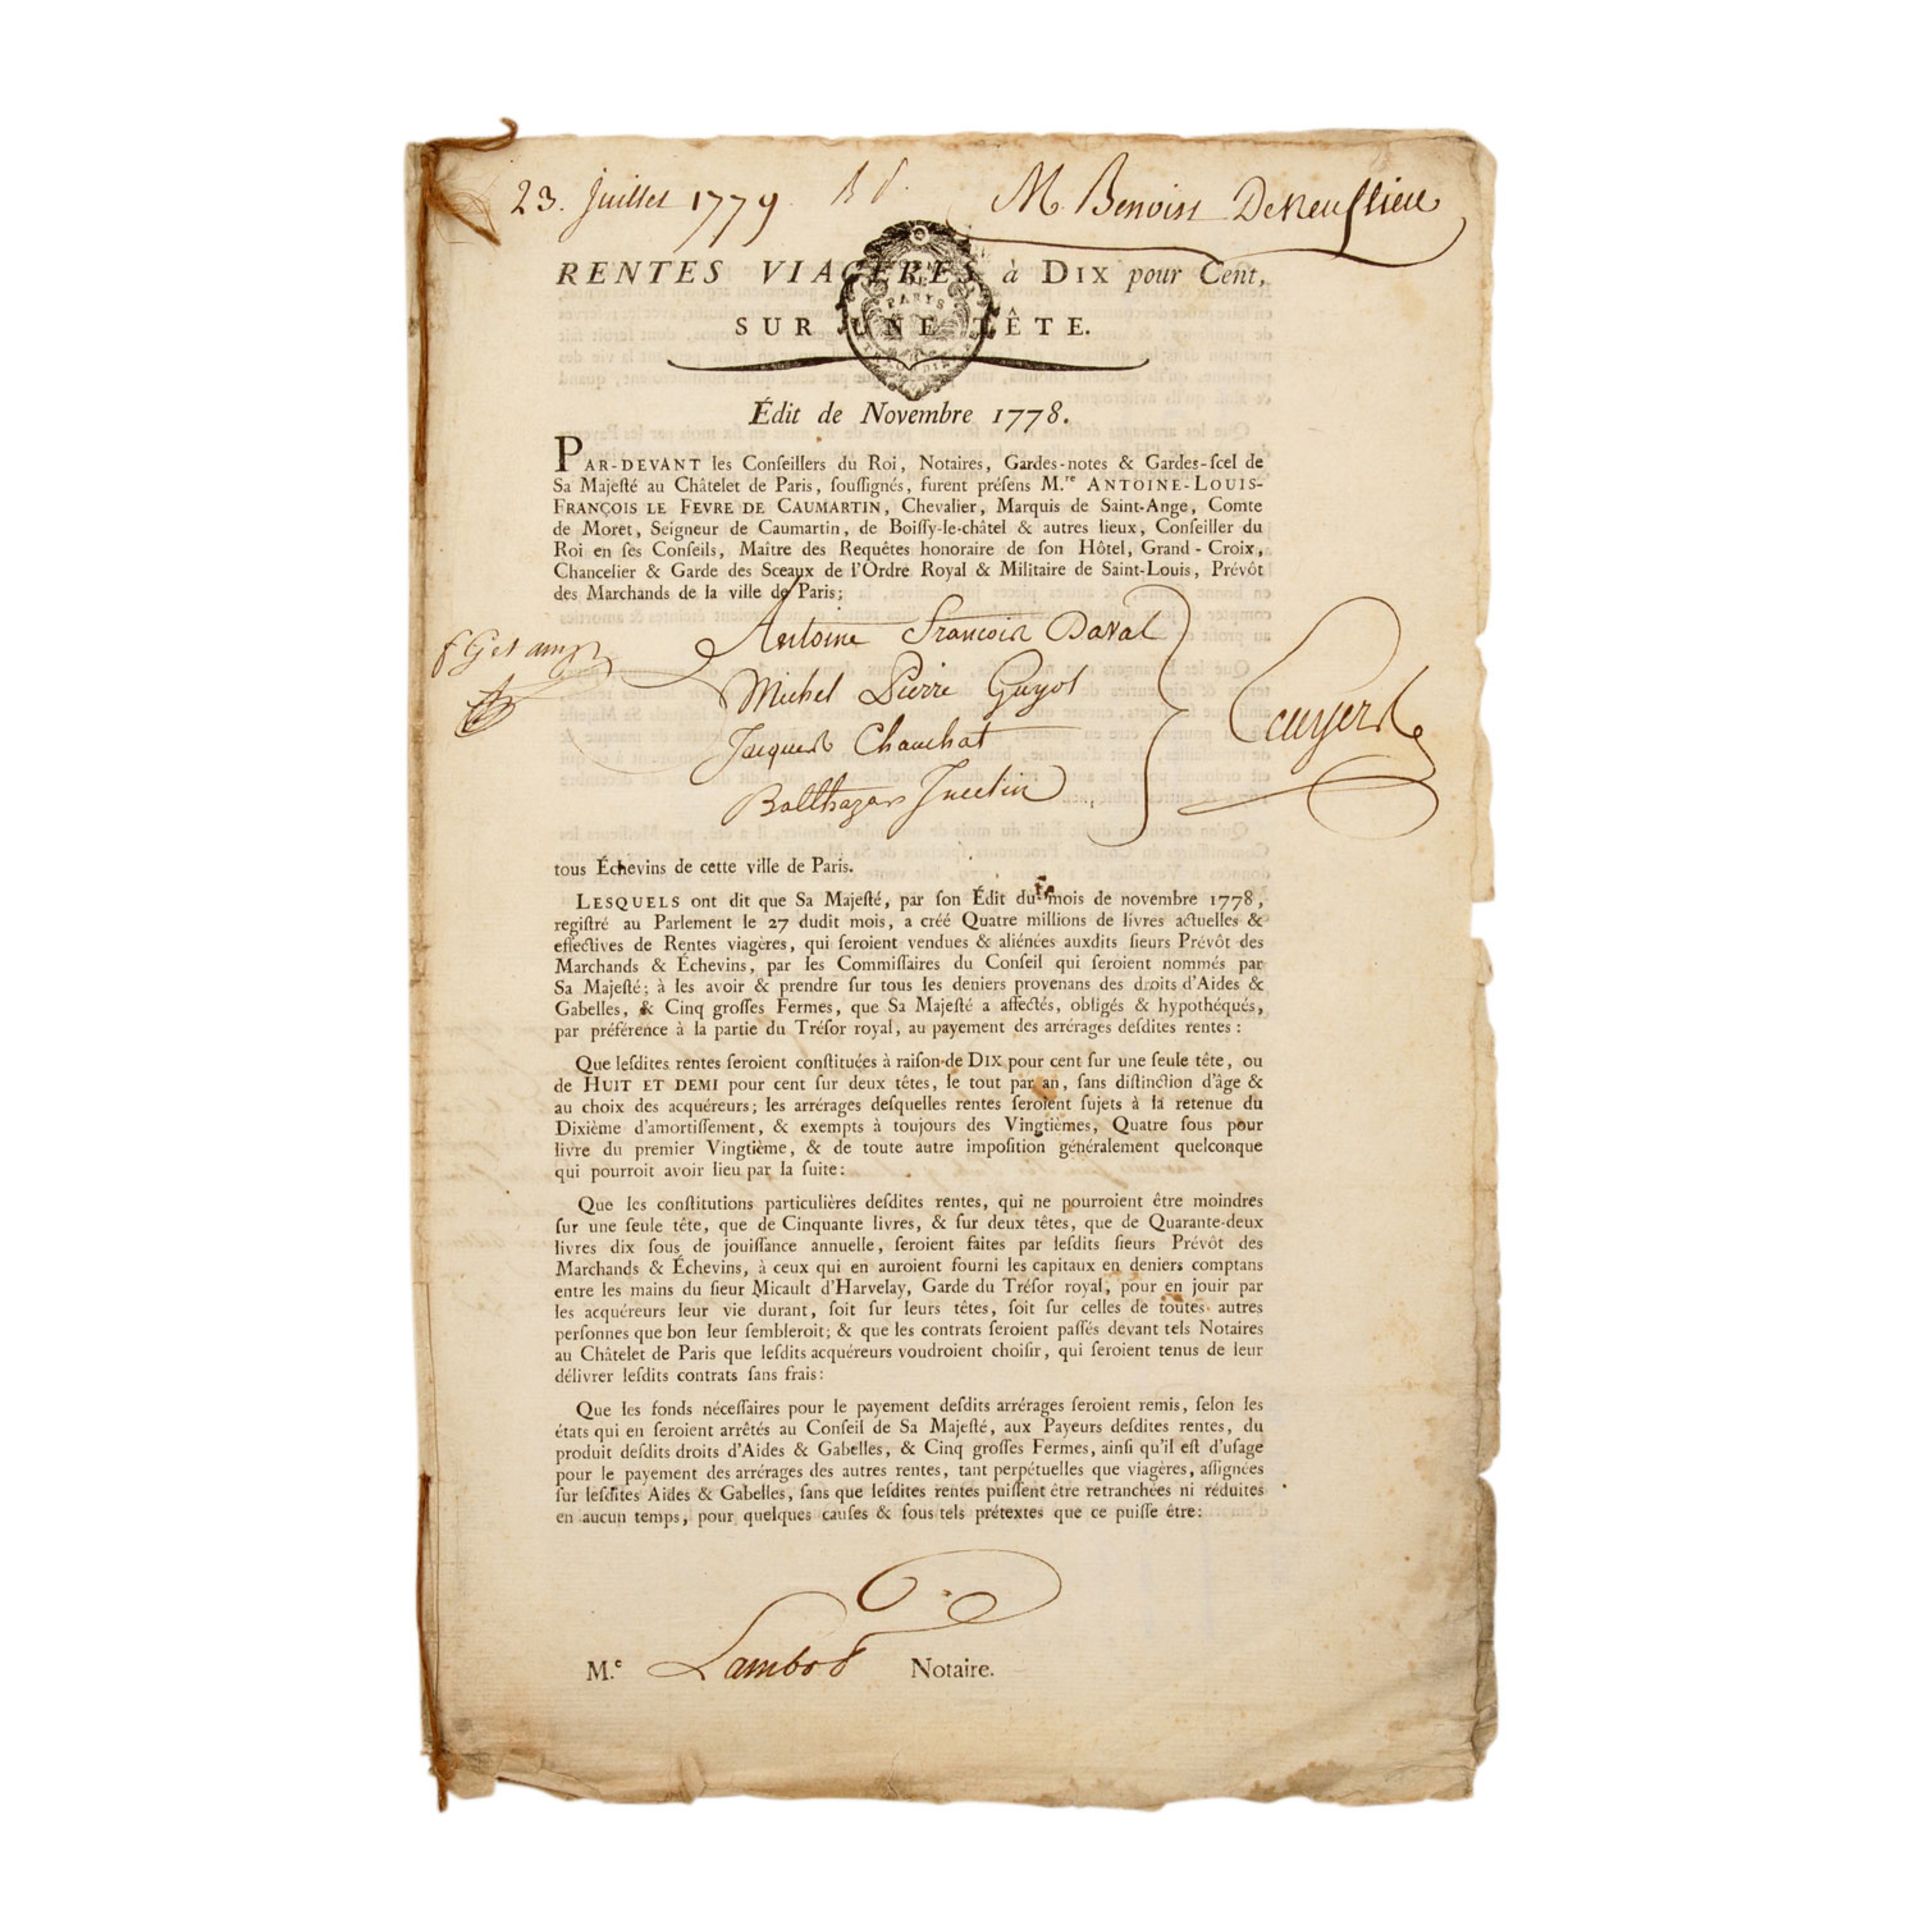 23. Juillet 1779. M. Benoist
RENTES VIAGERES à DIX pour Cent,
SUR UNE TÊTE.
PARYS
Édit de Novembre 1778.
PAR-DEVANT les Conſeillers du Roi, Notaires, Gardes-notes & Gardes-ſcel de
Sa Majeſté au Châtelet de Paris, ſouſſignés, furent préſens M.re ANTOINE-LOUIS-
FRANÇOIS LE FEVRE DE CAUMARTIN, Chevalier, Marquis de Saint-Ange, Comte
de Moret, Seigneur de Caumartin, de Boiſſy-le-châtel & autres lieux, Conſeiller du
Roi en ſes Conſeils, Maître des Requêtes honoraire de ſon Hôtel, Grand-Croix,
Chancelier & Garde des Sceaux de l'Ordre Royal & Militaire de Saint-Louis, Prévôt
des Marchands de la ville de Paris;
Antoine François Daval
Michel Pierre Guyot
Jacques Chauchat
Balthazar
tous Échevins de cette ville de Paris.
LESQUELS ont dit que Sa Majeſté, par ſon Édit du mois de novembre 1778,
regiſtré au Parlement le 27 dudit mois, a créé Quatre millions de livres actuelles &
effectives de Rentes viagères, qui ſeroient vendues & aliénées auxdits ſieurs Prévôt des
Marchands & Échevins, par les Commiſſaires du Conſeil qui ſeroient nommés par
Sa Majeſté; à les avoir & prendre ſur tous les deniers provenans des droits d'Aides &
Gabelles, & Cinq groſſes Fermes, que Sa Majeſté a affectés, obligés & hypothéqués,
par préférence à la partie du Tréſor royal, au payement des arrérages deſdites rentes:
Que leſdites rentes ſeroient conſtituées à raiſon de DIX pour cent ſur une ſeule tête, ou
de HUIT ET DEMI pour cent ſur deux têtes, le tout par an, ſans diſtinction d'âge &
au choix des acquéreurs; les arrérages deſquelles rentes ſeroient ſujets à la retenue du
Dixième d'amortiſſement, & exempts à toujours des Vingtièmes, Quatre ſous pour
livre du premier Vingtième, & de toute autre impoſition généralement quelconque
qui pourroit avoir lieu par la ſuite:
Que les conſtitutions particulières deſdites rentes, qui ne pourroient être moindres
ſur une ſeule tête, que de Cinquante livres, & ſur deux têtes, que de Quarante-deux
livres dix ſous de jouiſſance annuelle, ſeroient faites par leſdits ſieurs Prévôt des
Marchands & Échevins, à ceux qui en auroient fourni les capitaux en deniers comptans
entre les mains du ſieur Micault d'Harvelay, Garde du Tréſor royal, pour en jouir par
les acquéreurs leur vie durant, ſoit ſur leurs têtes, ſoit ſur celles de toutes autres
perſonnes que bon leur ſembleroit; & que les contrats ſeroient paſſés devant tels Notaires
au Châtelet de Paris que leſdits acquéreurs voudroient choiſir, qui ſeroient tenus de leur
délivrer leſdits contrats ſans frais:
Que les fonds néceſſaires pour le payement deſdits arrérages ſeroient remis, ſelon les
états qui en ſeroient arrêtés au Conſeil de Sa Majeſté, aux Payeurs deſdites rentes, du
produit deſdits droits d'Aides & Gabelles, & Cinq groſſes Fermes, ainſi qu'il eſt d'uſage
pour le payement des arrérages des autres rentes, tant perpétuelles que viagères, aſſignées
ſur leſdites Aides & Gabelles, ſans que leſdites rentes puiſſent être retranchées ni réduites
en aucun temps, pour quelques cauſes & ſous tels prétextes que ce puiſſe être:
M.e Lambot Notaire.